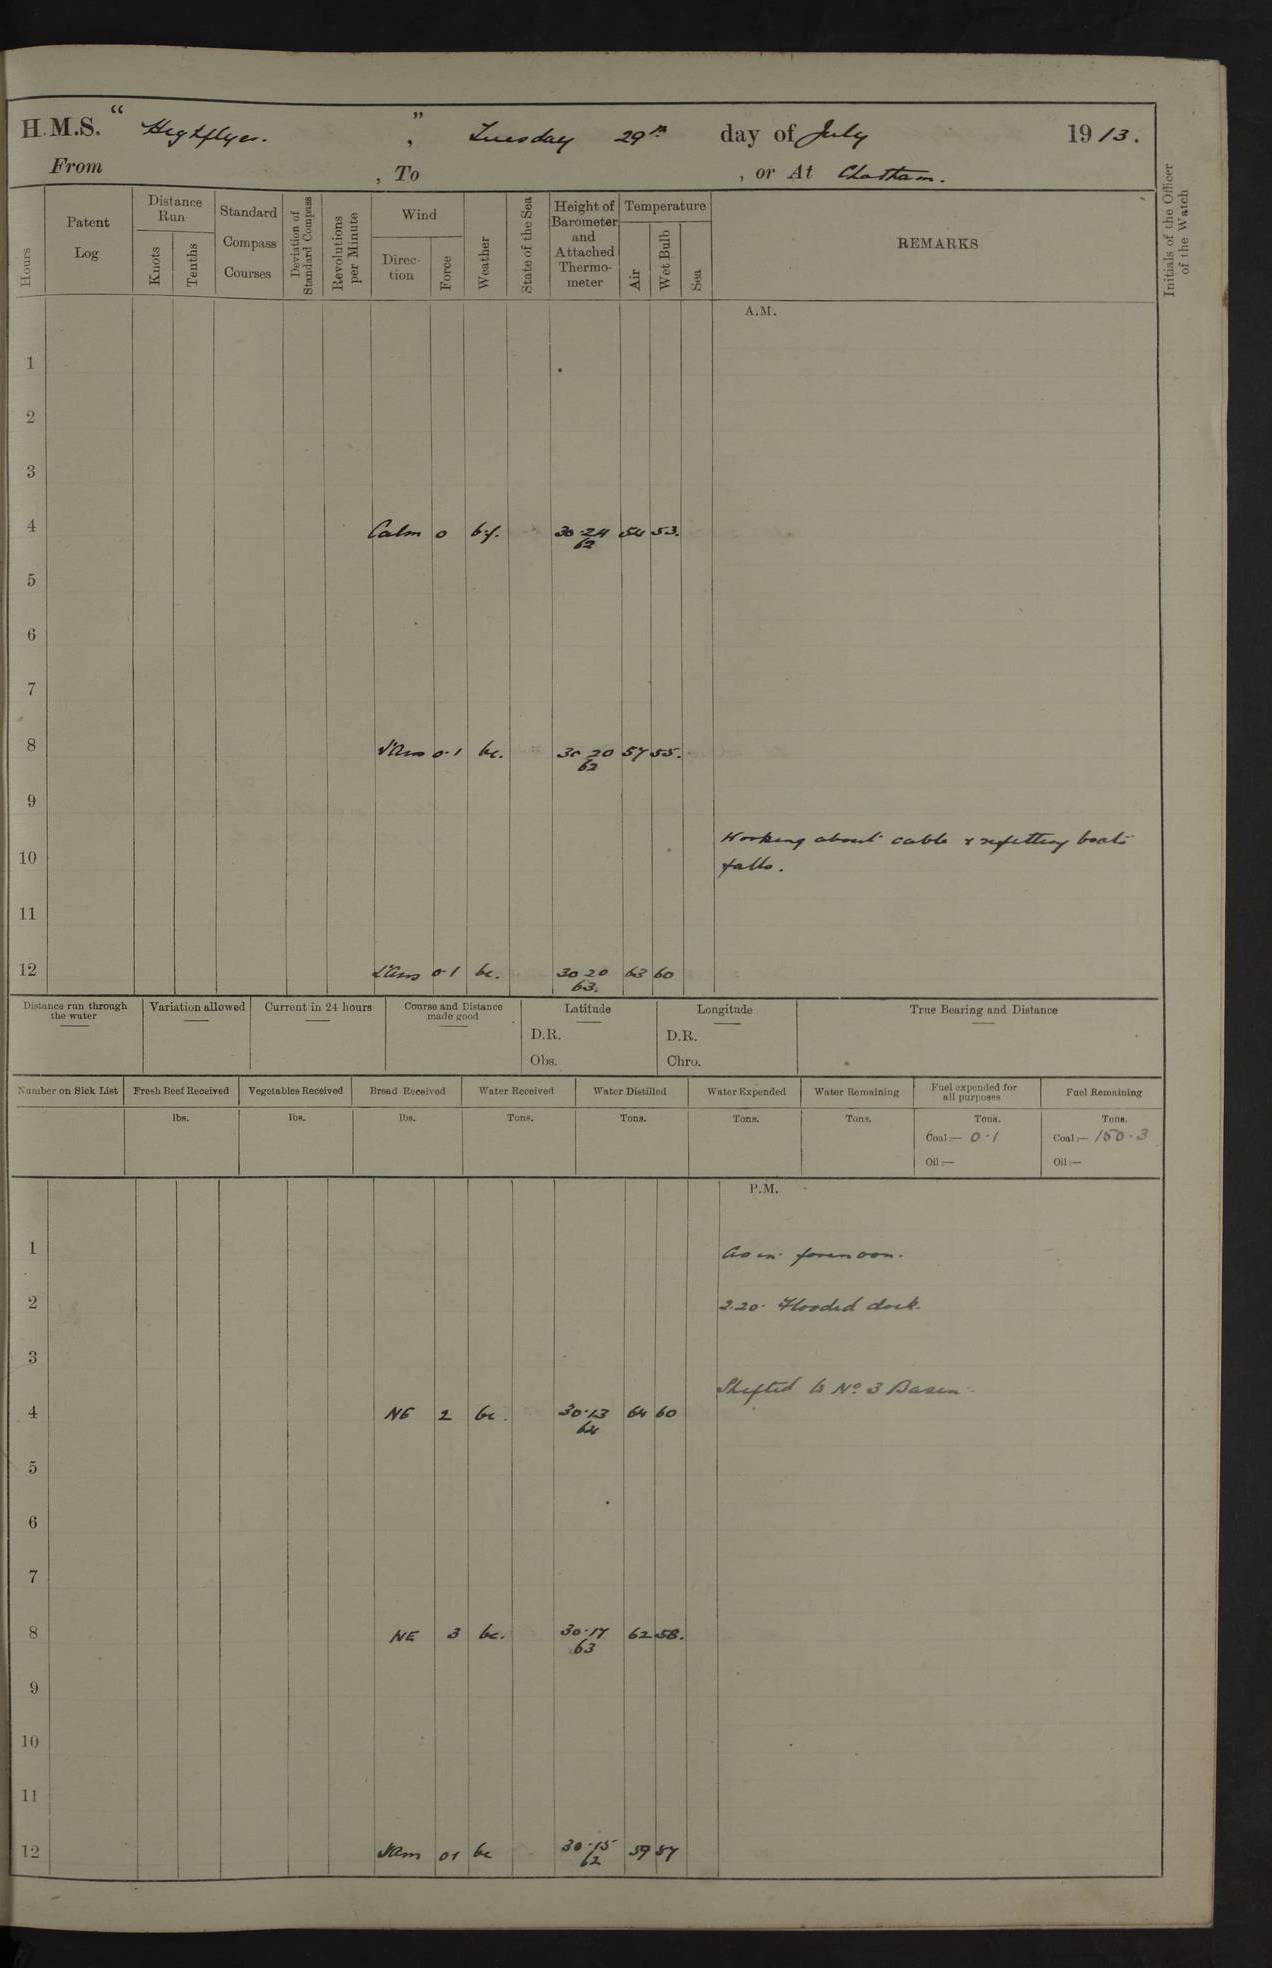 H.M.S. " Highflyer. ", Tuesday 29th day of July 1913.
From , To , or At Chatham.
Hours
Patent Log
Distance Run
Knots
Tenths
Standard Compass Courses
Deviation of Standard Compass
Revolutions per Minute
Wind
Direction
Force
Weather
State of the Sea
Height of Barometer and Attached Thermometer
Temperature
Air
Wet Bulb
Sea
REMARKS
Initials of the Officer of the Watch
A.M.
1
2
3
4 Calm 0 30.24 62 54 53.
5
6
7
8 0.1 bc. 30 20 62 57 55.
9
Working about cable & refitting boats
10 falls.
11
12 0.1 bc. 30 20 63. 63 60
Distance run through the water
Variation allowed
Current in 24 hours
Course and Distance made good
Latitude
D.R.
Obs.
Longitude
D.R.
Chro.
True Bearing and Distance
Number on Sick List
Fresh Beef Received lbs.
Vegetables Received lbs.
Bread Received lbs.
Water Received Tons.
Water Distilled Tons.
Water Expended Tons.
Water Remaining Tons.
Fuel expended for all purposes Tons.
Coal:— 0.1
Oil:—
Fuel Remaining Tons.
Coal:— 150.3
Oil:—
P.M.
1 As in forenoon.
2 2.20. Flooded dock.
3
Shifted to No. 3 Basin.
4 NE 2 bc. 30.13 64 64 60
5
6
7
8 NE 3 bc. 30.17 63 62 58.
9
10
11
12 01 bc 30.15 62 59 57